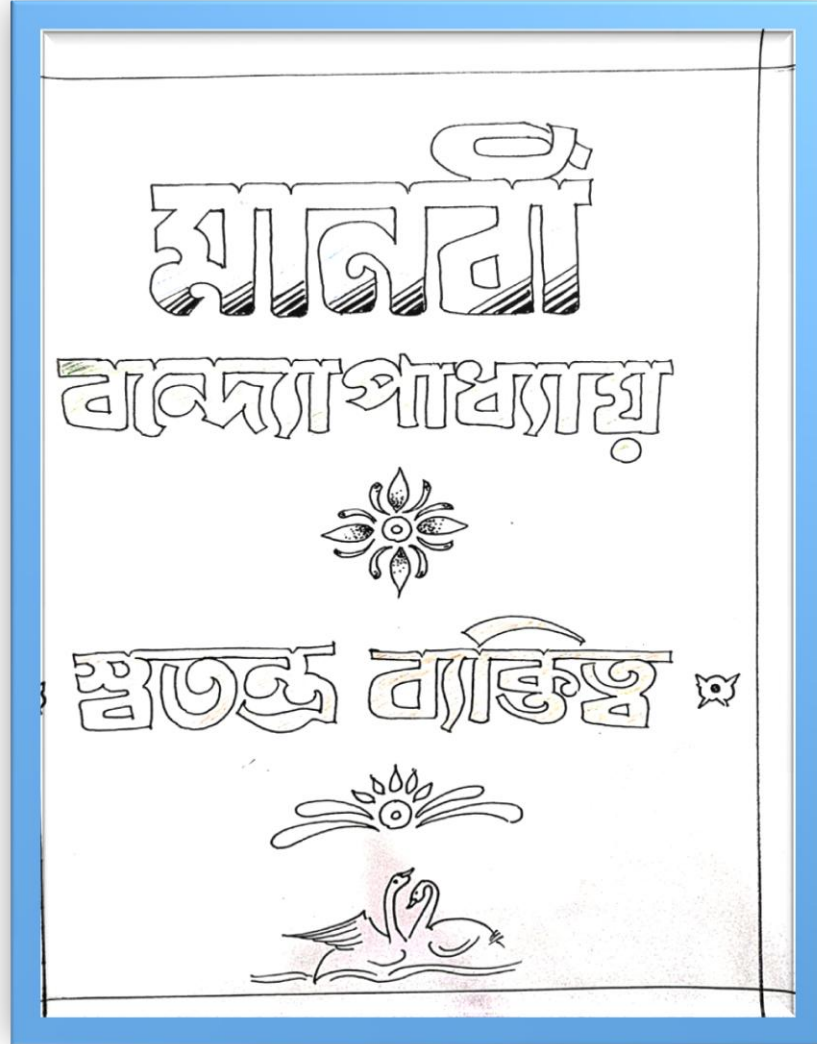 মানবী
বন্দ্যোপাধ্যায়
স্বতন্ত্র ব্যক্তিত্ব